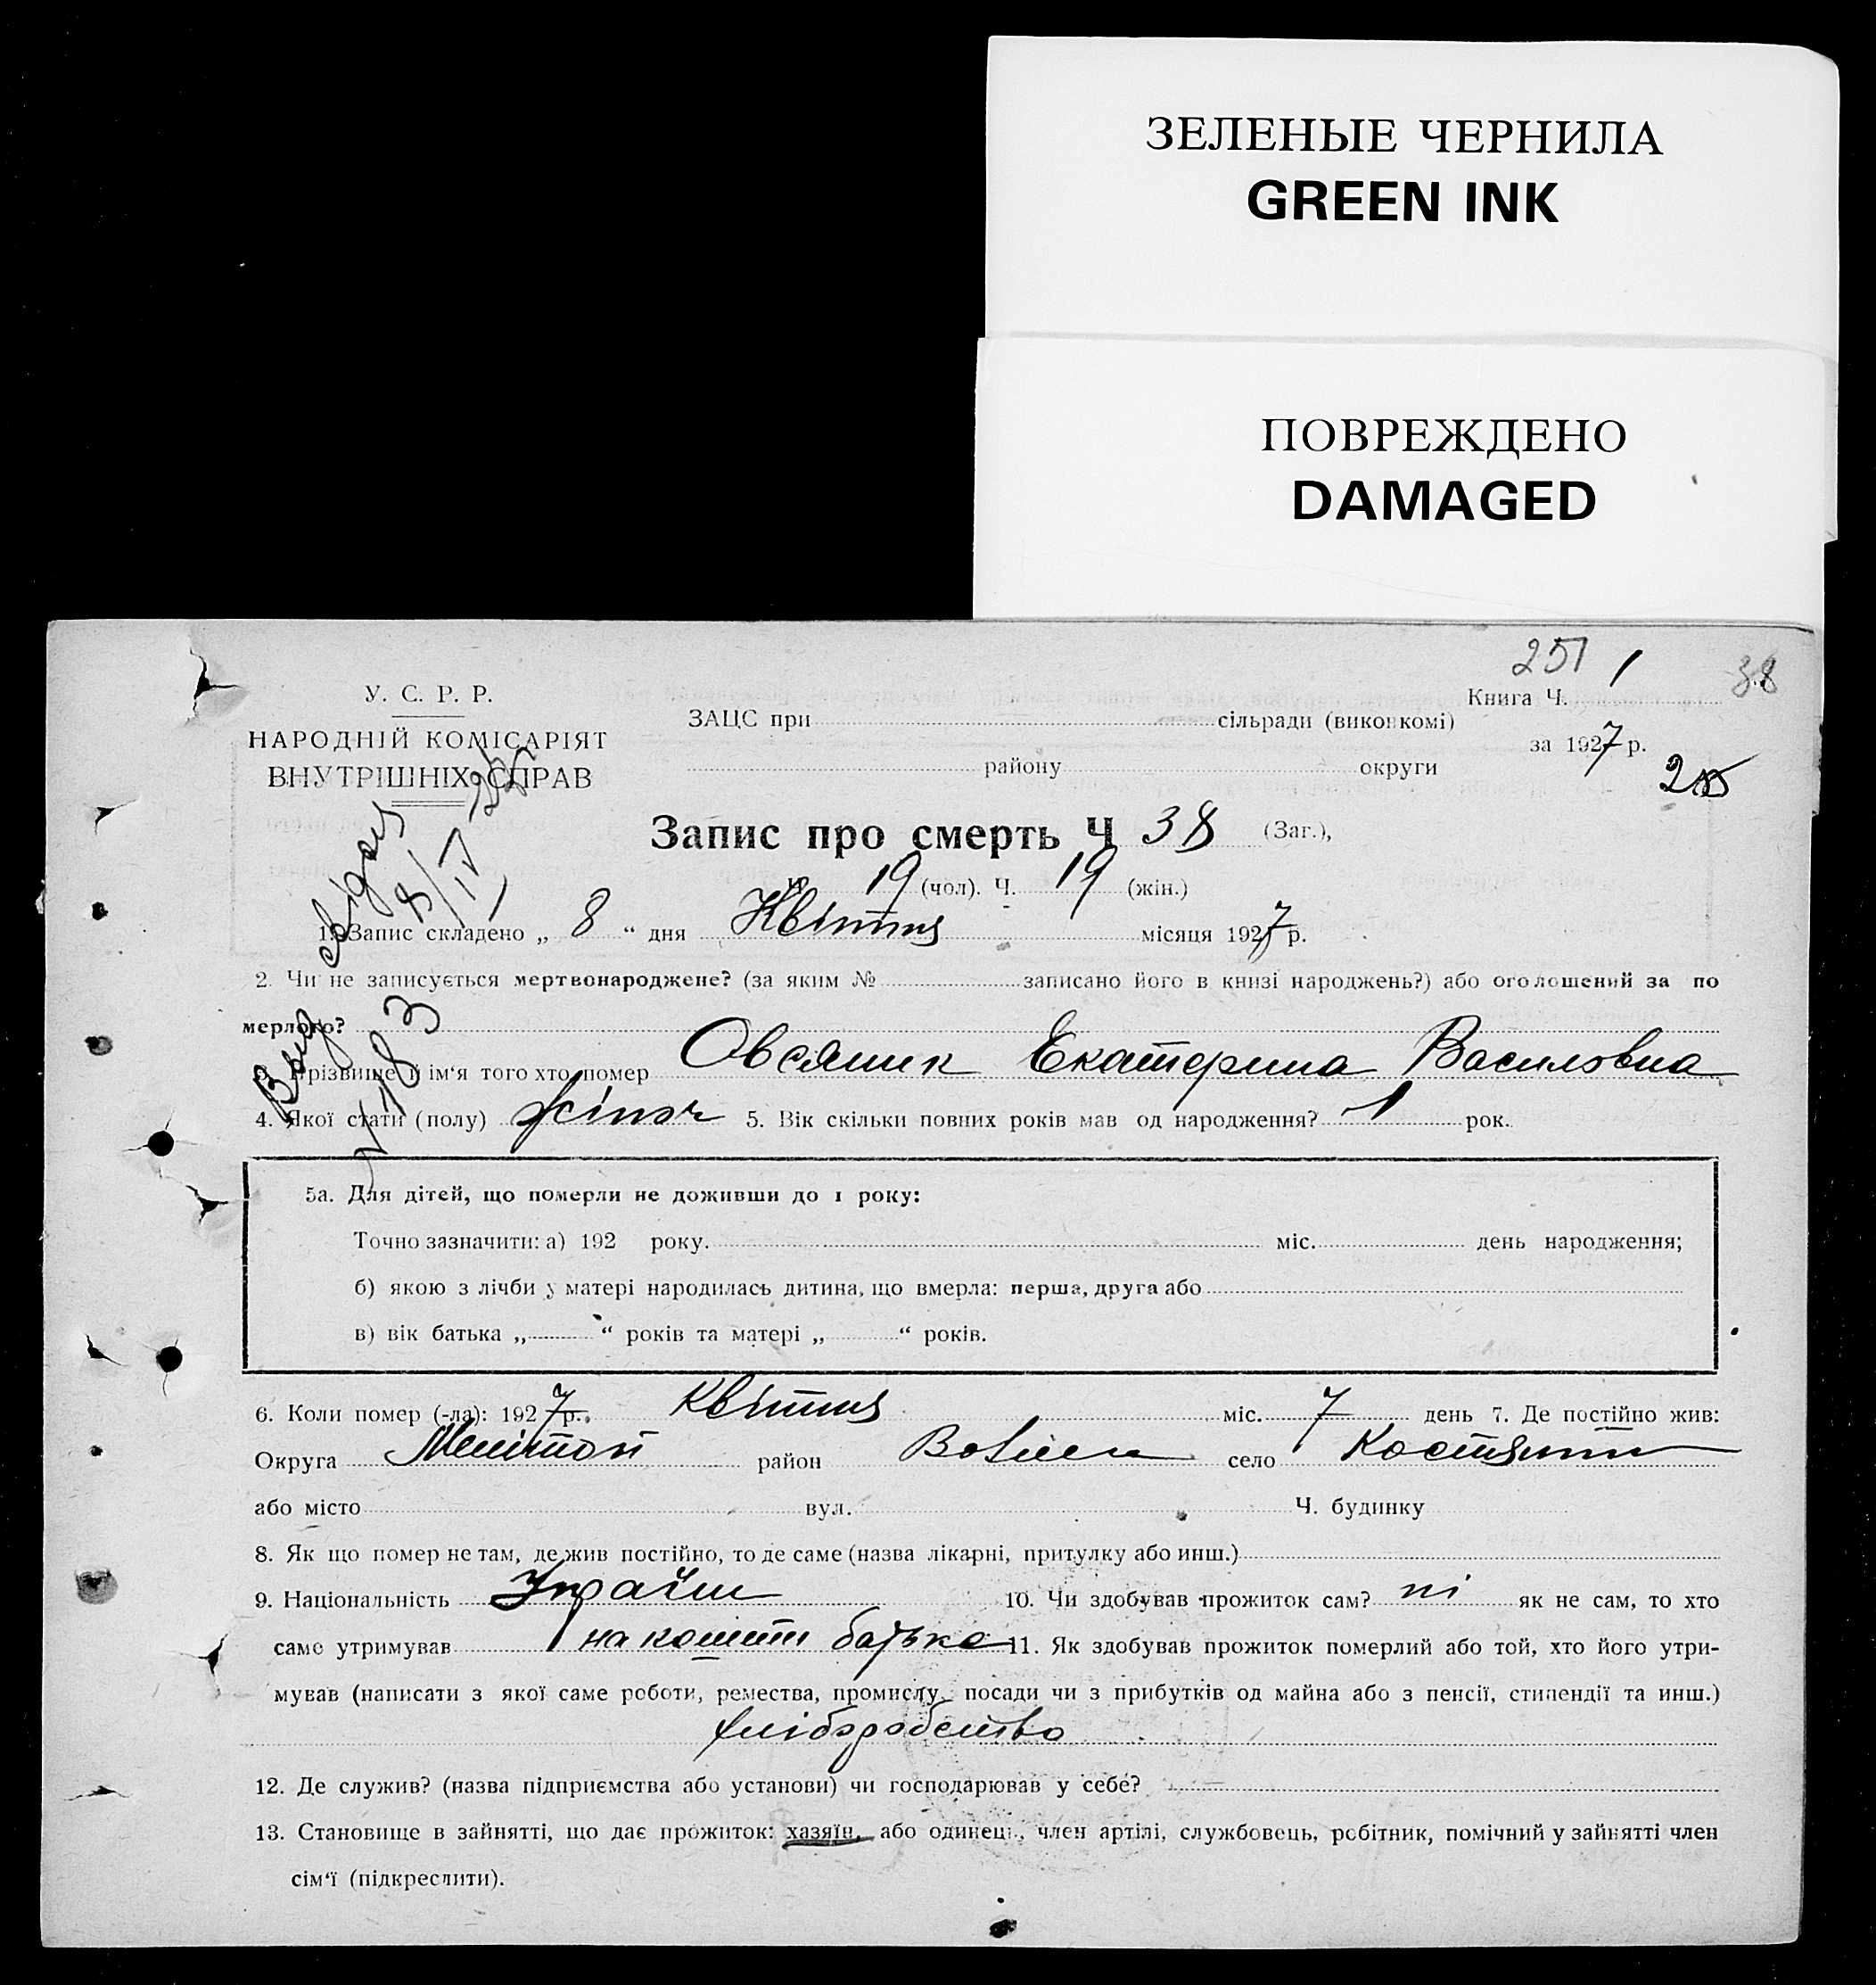 ЗЕЛЕНЫЕ ЧЕРНИЛА
GREEN INK
ПОВРЕЖДЕНО
DAMAGED
251 1 38
У. С. Р. Р.
НАРОДНІЙ КОМІСАРІЯТ
ВНУТРІШНІХ СПРАВ
ЗАЦС при сільради (виконкомі)
району округи
Книга Ч.
за 1927 р.
Запис про смерть Ч 38 (Заг.),
Ч. 19 (чол). Ч. 19 (жін.)
1. Запис складено „ 8 “ дня Квітня місяця 1927 р.
2. Чи не записується мертвонароджене? (за яким № записано його в книзі народжень?) або оголошений за по
мерлого?
3. Прізвище й ім'я того хто помер Овсяник Екатерина Василовна
4. Якої стати (полу) жіноч 5. Вік скільки повних років мав од народження? 1 рок.
5а. Для дітей, що померли не доживши до 1 року:
Точно зазначити: а) 192 року. міс. день народження;
б) якою з лічби у матері народилась дитина, що вмерла: перша, друга або
в) вік батька „ “ років та матері „ “ років.
6. Коли помер (-ла): 1927 р. Квітня міс. 7 день 7. Де постійно жив:
Округа Меліто́п район село
або місто вул. Ч. будинку
8. Як що помер не там, де жив постійно, то де саме (назва лікарні, притулку або инш.)
9. Національність Україн 10. Чи здобував прожиток сам? ні як не сам, то хто
саме утримував на кошти батька 11. Як здобував прожиток померлий або той, хто його утри-
мував (написати з якої саме роботи, ремества, промислу, посади чи з прибутків од майна або з пенсії, стипендії та инш.)
хліборобство
12. Де служив? (назва підприємства або установи) чи господарював у себе?
13. Становище в зайнятті, що дає прожиток: хазяїн, або одинець, член артілі, службовець, робітник, помічний у зайнятті член
сім'ї (підкреслити).